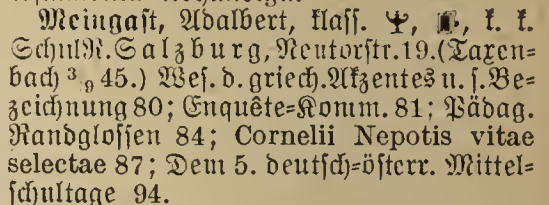 Meingast, Adalbert, klass. k. k.
SchulR. Salzburg, Neutorstr. 19. (Taxen=
bach 3/9 45.) Wes. d. griech. Akzentes u. s. Be=
zeichnung 80; Enquête=Komm. 81; Pädag.
Randglossen 84; Cornelii Nepotis vitae
selectae 87; Dem 5. deutsch=österr. Mittel=
schultage 94.